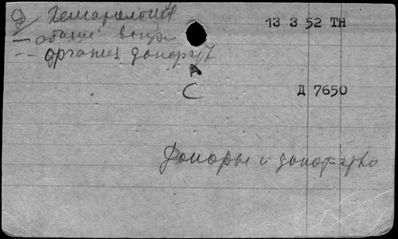 Гематология
13 3 52 ТН
— общие вопр
— организ. донорст
А
С
Д 7650
Доноры и донорство